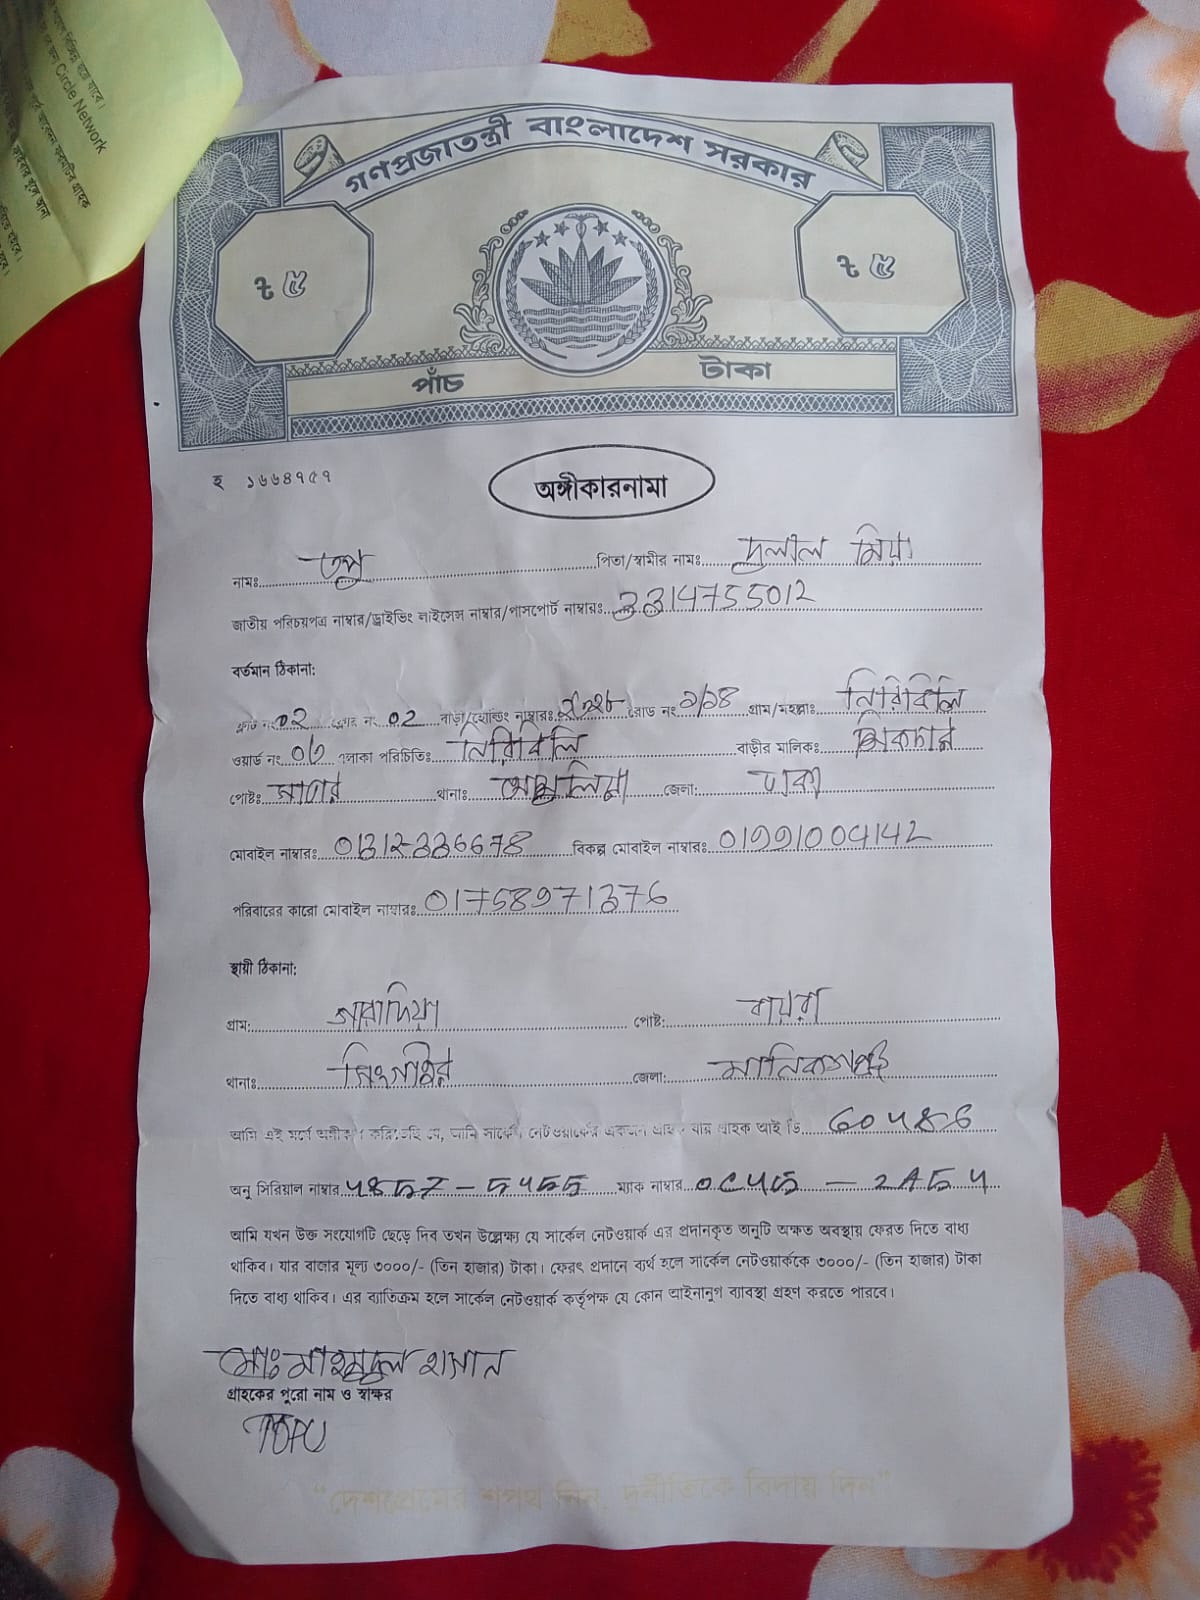 গণপ্রজাতন্ত্রী বাংলাদেশ সরকার
৳ ৫ ৳ ৫
পাঁচ টাকা
হ ১৬৬৪৭৫৭
অঙ্গীকারনামা
নামঃ তপু পিতা/স্বামীর নামঃ দুলাল মিয়া
জাতীয় পরিচয়পত্র নাম্বার/ড্রাইভিং লাইসেন্স নাম্বার/পাসপোর্ট নাম্বারঃ 3314755012
বর্তমান ঠিকানা:
ফ্ল্যাট নং 02 ফ্লোর নং 02 বাড়ী/হোল্ডিং নাম্বারঃ রোড নং গ্রাম/মহল্লাঃ নিরিবিলি
ওয়ার্ড নং এলাকা পরিচিতিঃ নিরিবিলি বাড়ীর মালিকঃ
পোষ্টঃ সাভার থানাঃ আশুলিয়া জেলা: ঢাকা
মোবাইল নাম্বারঃ 01312336678 বিকল্প মোবাইল নাম্বারঃ
পরিবারের কারো মোবাইল নাম্বারঃ 01758971376
স্থায়ী ঠিকানা:
গ্রাম: পোষ্ট: বায়রা
থানাঃ সিংগাইর জেলা: মানিকগঞ্জ
আমি এই মর্মে অঙ্গীকার করিতেছি যে, আমি সার্কেল নেটওয়ার্কের একজন গ্রাহক যার গ্রাহক আই ডি
অনু সিরিয়াল নাম্বার ম্যাক নাম্বার
আমি যখন উক্ত সংযোগটি ছেড়ে দিব তখন উল্লেক্ষ্য যে সার্কেল নেটওয়ার্ক এর প্রদানকৃত অনুটি অক্ষত অবস্থায় ফেরত দিতে বাধ্য
থাকিব। যার বাজার মূল্য ৩০০০/- (তিন হাজার) টাকা। ফেরৎ প্রদানে ব্যর্থ হলে সার্কেল নেটওয়ার্ককে ৩০০০/- (তিন হাজার) টাকা
দিতে বাধ্য থাকিব। এর ব্যাতিক্রম হলে সার্কেল নেটওয়ার্ক কর্তৃপক্ষ যে কোন আইনানুগ ব্যাবস্থা গ্রহণ করতে পারবে।
মোঃ মাহমুদুল হাসান
গ্রাহকের পুরো নাম ও স্বাক্ষর
TOPU
"দেশপ্রেমের শপথ নিন, দুর্নীতিকে বিদায় দিন"
Circle Network